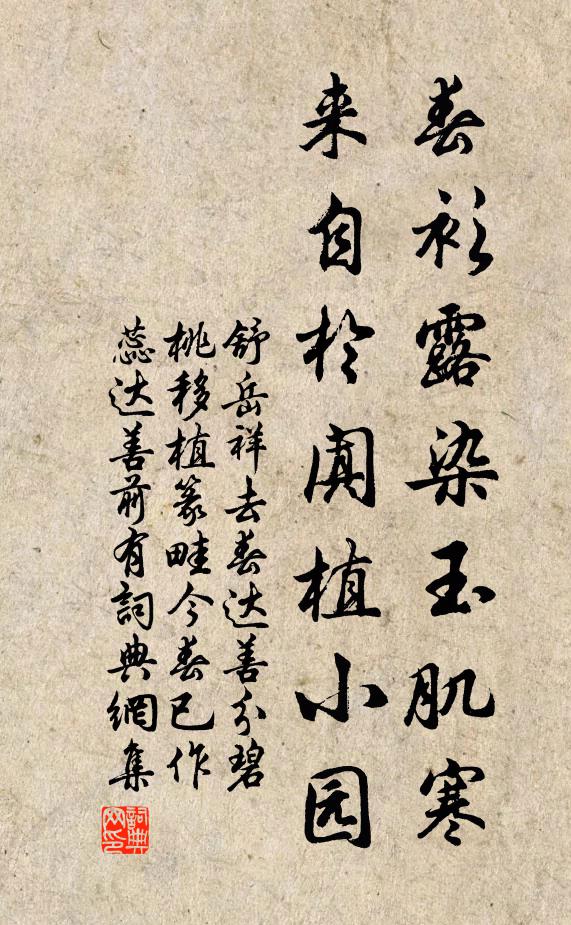 春衫露染玉肌寒
来自於阗植小园
舒岳祥去春达善分碧
桃移植篆畦今春已作
蕊达善前有詞典網集
詞典网印